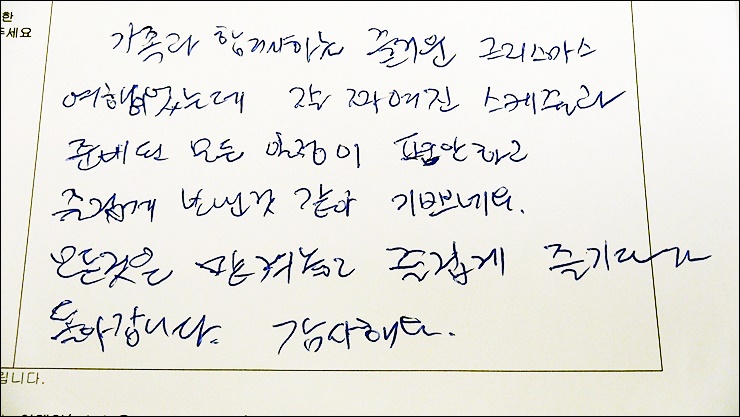 한
주세요
가족과 함께하는 즐거운 크리스마스
여행이었는데 잘 짜여진 스케쥴과
준비된 모든 일정이 편안하고
즐겁게 보낸것 같아 기쁘네요.
모든것을 만족하고 즐겁게 즐기다가
돌아갑니다. 감사해요.
립니다.